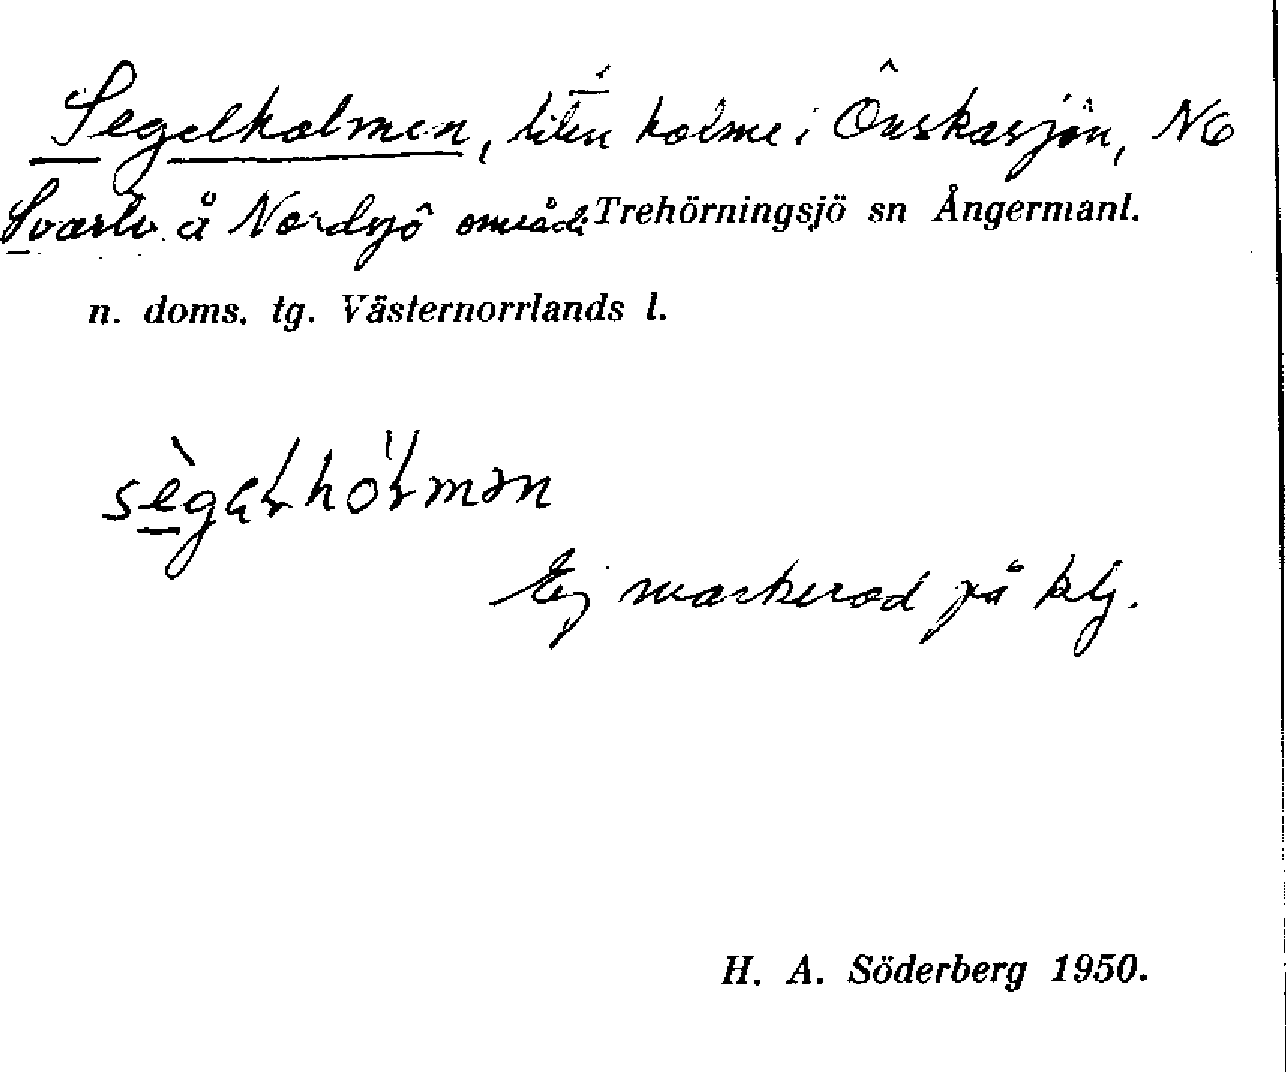 Segelholmen, liten holme i Önskasjön, NO
Svartv. å Nordsjö område Trehörningsjö sn Ångermanl.
n. doms. tg. Västernorrlands l.
Ej markerad på klg.
H. A. Söderberg 1950.